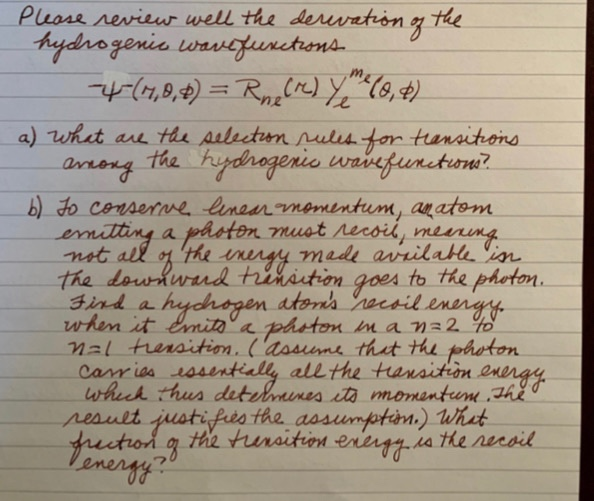 Please review well the derevation of the
hydrogenic wavefunctions
ψ(r,θ,φ) = Rnl(r) Yl^ml(θ,φ)
a) What are the selection rules for transitions
among the hydrogenic wavefunctions?
b) To conserve linear momentum, an atom
emitting a photon must recoil, meaning
not all of the energy made available in
the downward transition goes to the photon.
Find a hydrogen atom's recoil energy
when it emits a photon in a n=2 to
n=1 transition. (Assume that the photon
carries essentially all the transition energy
which thus determines its momentum. The
result justifies the assumption.) What
fraction of the transition energy is the recoil
energy?